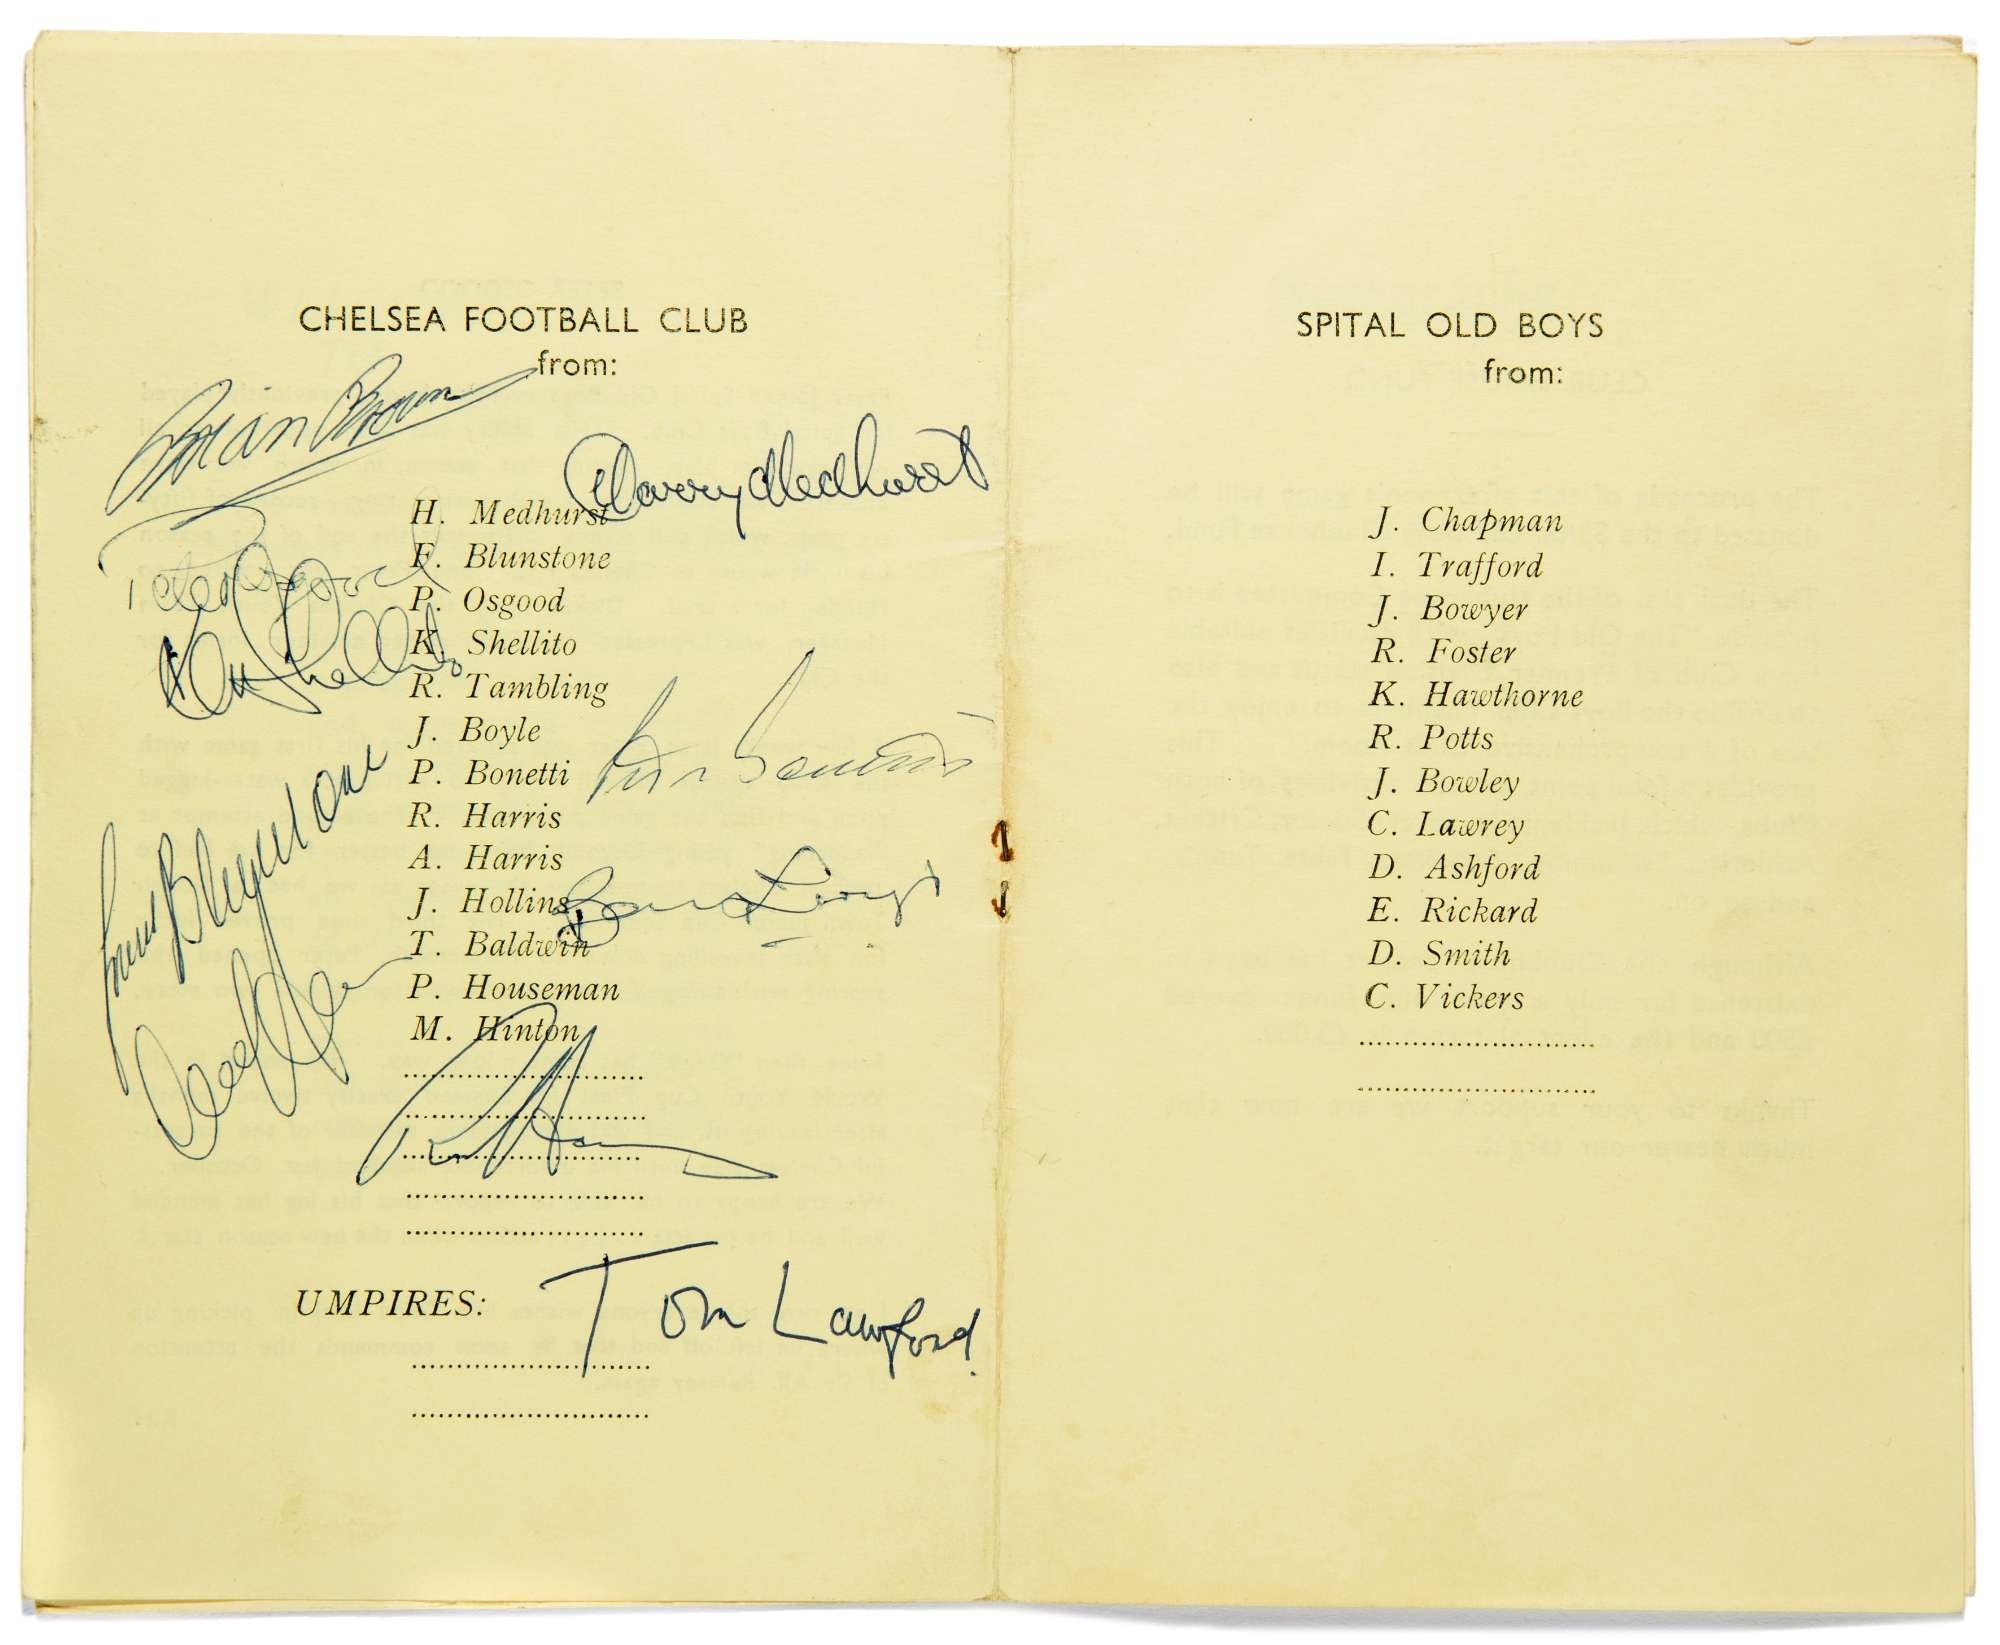 CHELSEA FOOTBALL CLUB
from:
Brian Brown
Harry Medhurst
H. Medhurst
F. Blunstone
Peter Osgood
P. Osgood
Ken Shellito
K. Shellito
R. Tambling
J. Boyle
P. Bonetti
R. Harris
A. Harris
J. Hollins
T. Baldwin
Frank Blunstone
P. Houseman
M. Hinton
UMPIRES:
Tom Lawford.
SPITAL OLD BOYS
from:
J. Chapman
I. Trafford
J. Bowyer
R. Foster
K. Hawthorne
R. Potts
J. Bowley
C. Lawrey
D. Ashford
E. Rickard
D. Smith
C. Vickers